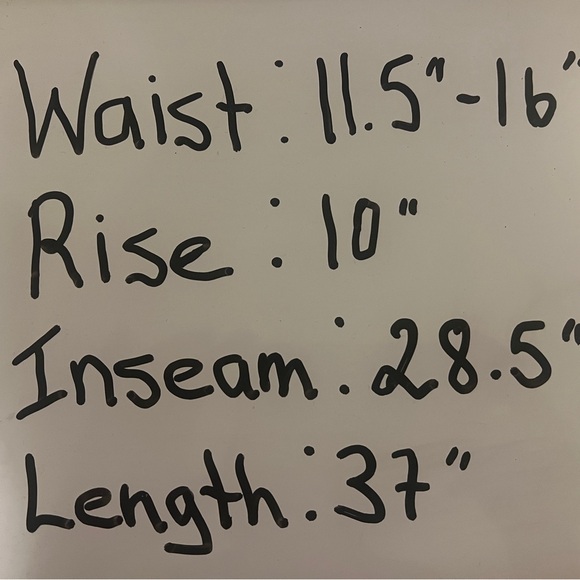 Waist: 11.5"-16"
Rise: 10"
Inseam: 28.5"
Length: 37"